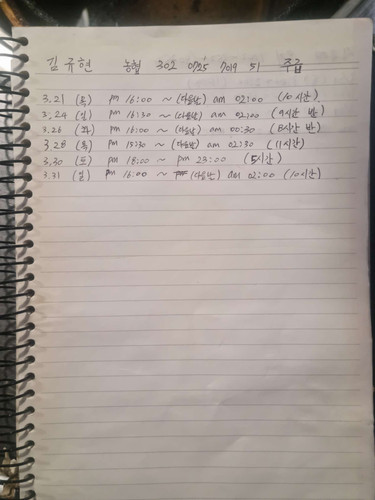 김규현 농협 302 0725 7019 51 주급
3.21 (목) pm 16:00 ~ (다음날) am 02:00 (10시간)
3.24 (일) pm 16:30 ~ (다음날) am 02:00 (9시간 반)
3.26 (화) pm 16:00 ~ (다음날) am 00:30 (8시간 반)
3.28 (목) pm 15:30 ~ (다음날) am 02:30 (11시간)
3.30 (토) pm 18:00 ~ pm 23:00 (5시간)
3.31 (일) pm 16:00 ~ (다음날) am 02:00 (10시간)